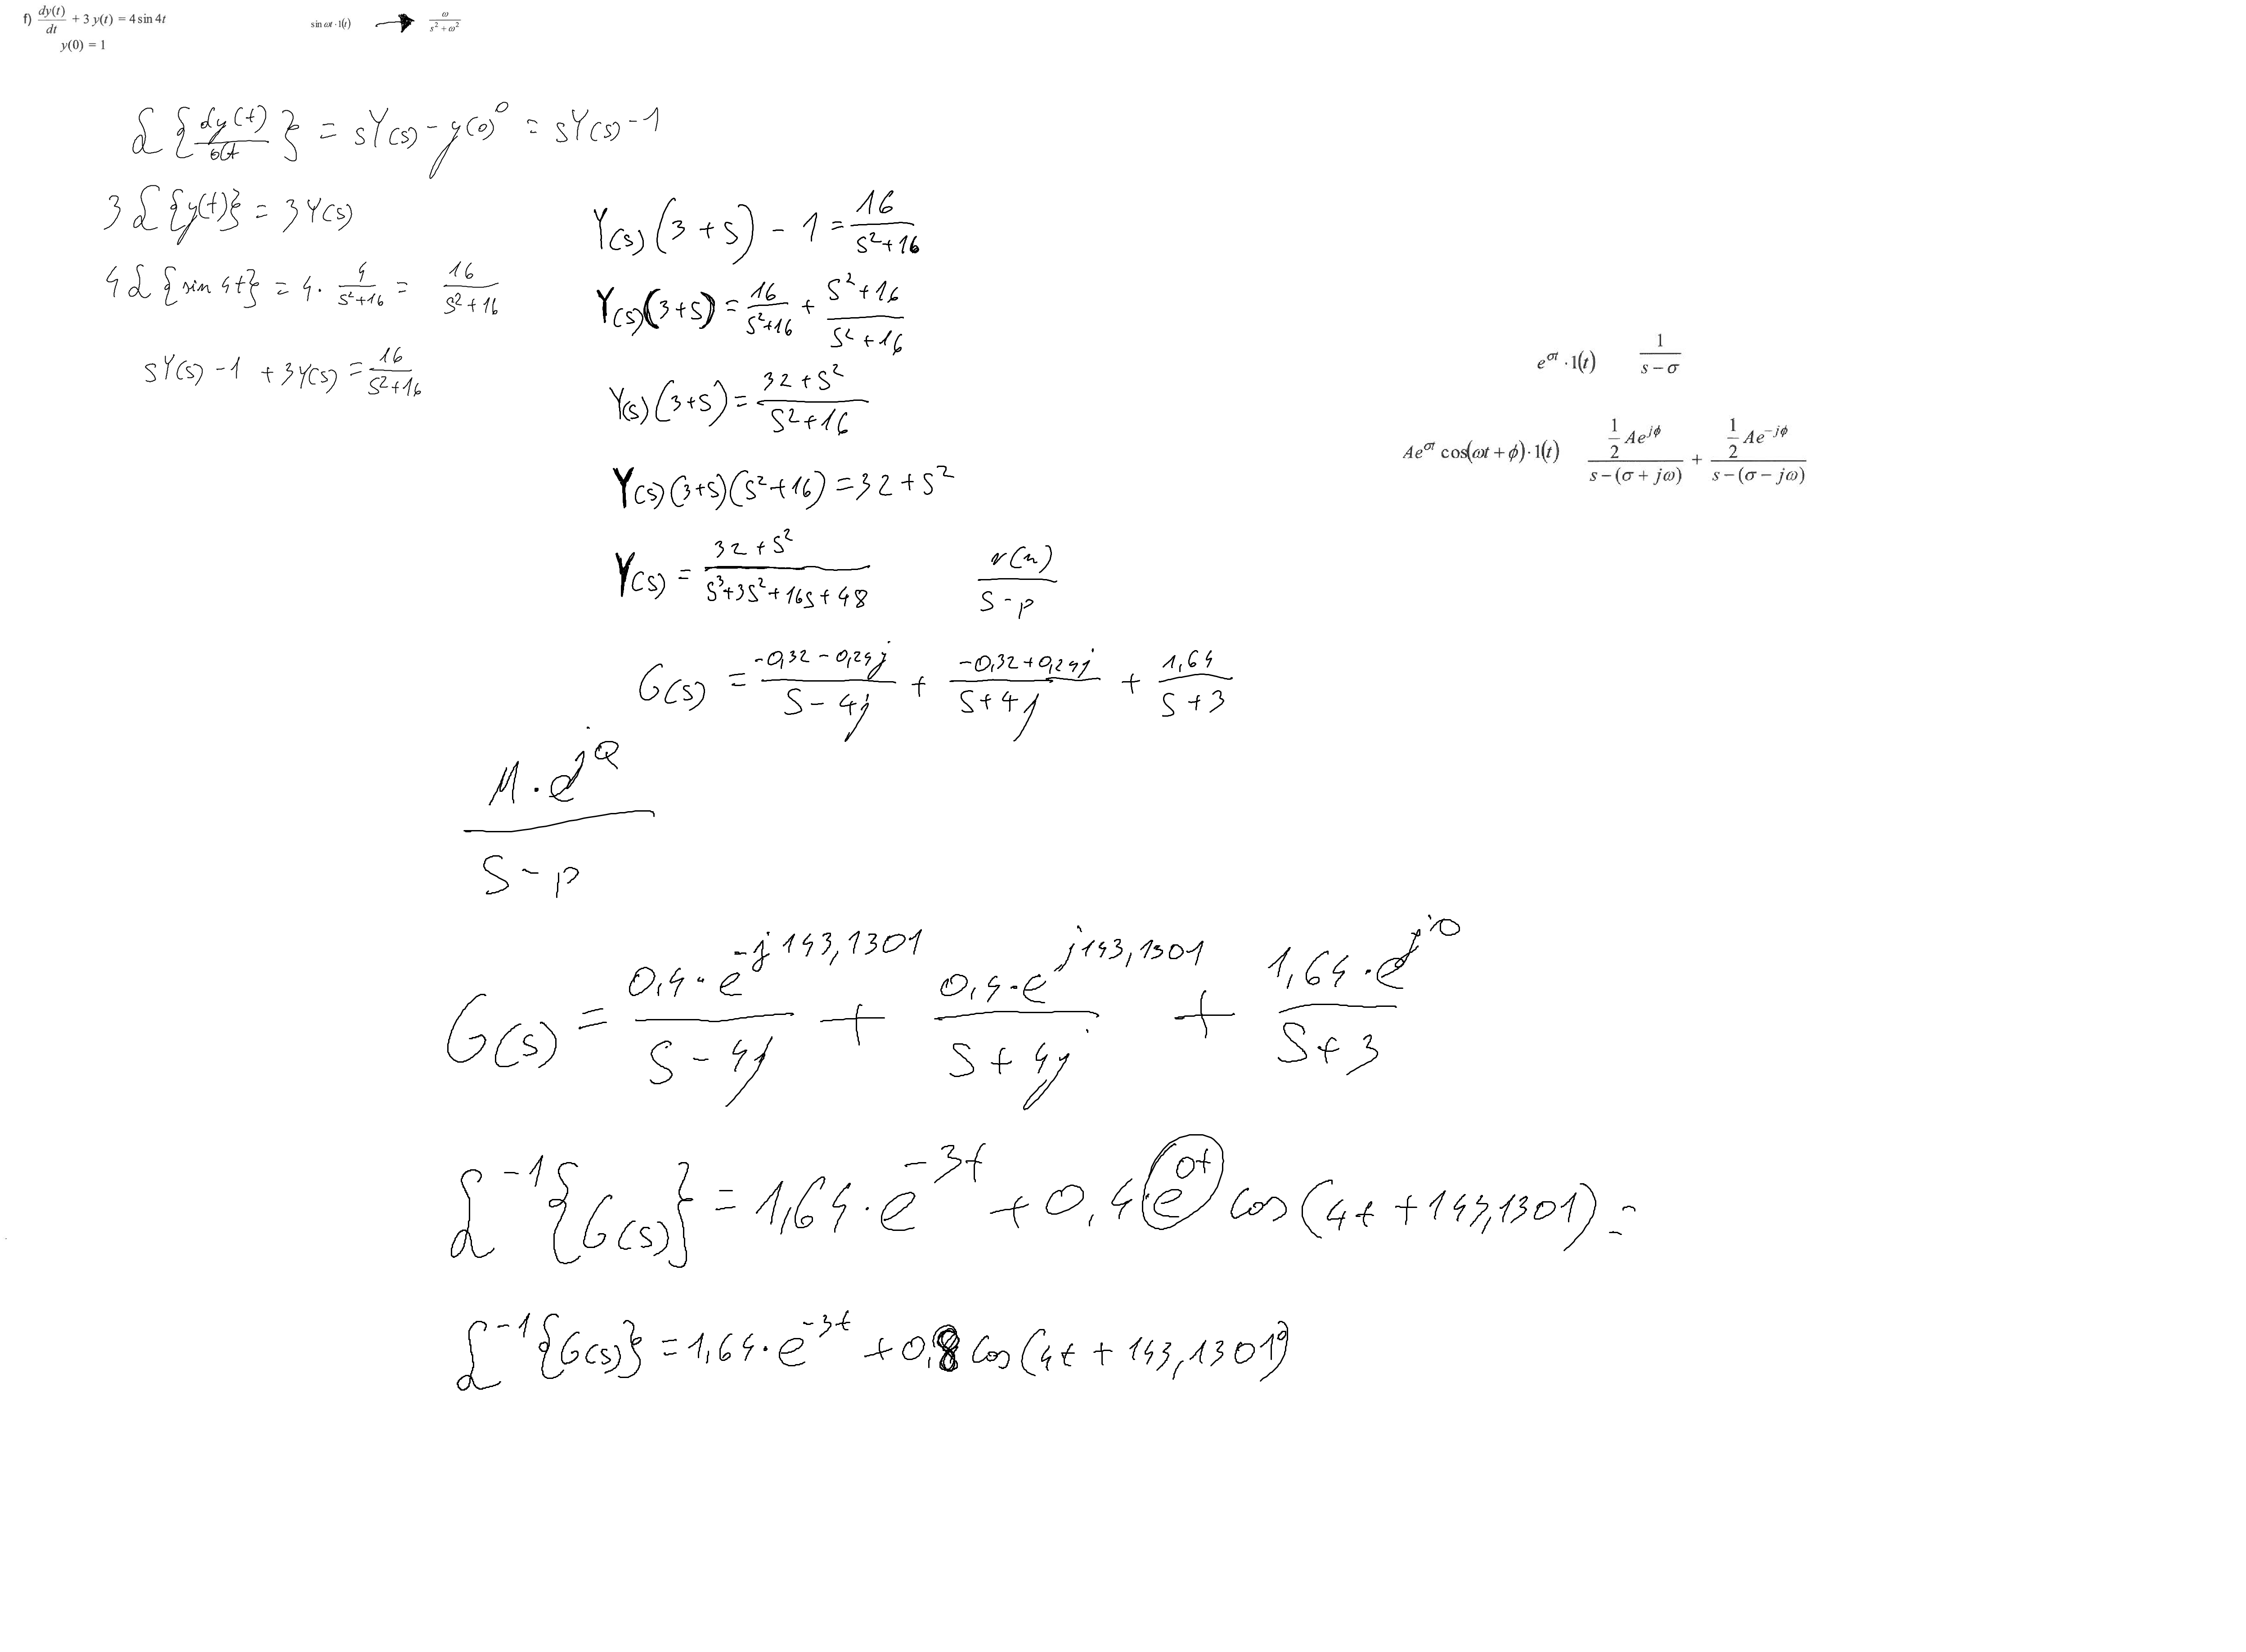 f) dy(t)/dt + 3 y(t) = 4 sin 4t
y(0) = 1
sin ωt · 1(t) → ω/(s² + ω²)
ℒ{dy(t)/dt} = sY(s) - y(0)⁰ = sY(s) - 1
3ℒ{y(t)} = 3Y(s)
4ℒ{sin 4t} = 4 · 4/(s²+16) = 16/(s²+16)
sY(s) - 1 + 3Y(s) = 16/(s²+16)
Y(s)(3+s) - 1 = 16/(s²+16)
Y(s)(3+s) = 16/(s²+16) + (s²+16)/(s²+16)
Y(s)(3+s) = (32+s²)/(s²+16)
Y(s)(3+s)(s²+16) = 32+s²
Y(s) = (32+s²)/(s³+3s²+16s+48)
r(n)/(s-p)
e^σt · 1(t) 1/(s-σ)
Ae^σt cos(ωt+ϕ)·1(t) (1/2 Ae^jϕ)/(s-(σ+jω)) + (1/2 Ae^-jϕ)/(s-(σ-jω))
G(s) = (-0,32-0,24j)/(s-4j) + (-0,32+0,24j)/(s+4j) + 1,64/(s+3)
(M·e^jQ)/(s-p)
G(s) = (0,4·e^-j143,1301)/(s-4j) + (0,4·e^j143,1301)/(s+4j) + (1,64·e^j0)/(s+3)
ℒ⁻¹{G(s)} = 1,64·e^-3t + 0,4·e^0t cos(4t+143,1301) =
ℒ⁻¹{G(s)} = 1,64·e^-3t + 0,8 cos(4t+143,1301°)